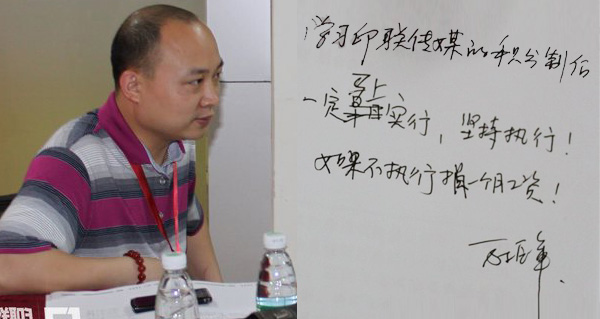 学习印联传媒的积分制后
一定马上实行，坚持执行！
如果不执行捐一个月工资！